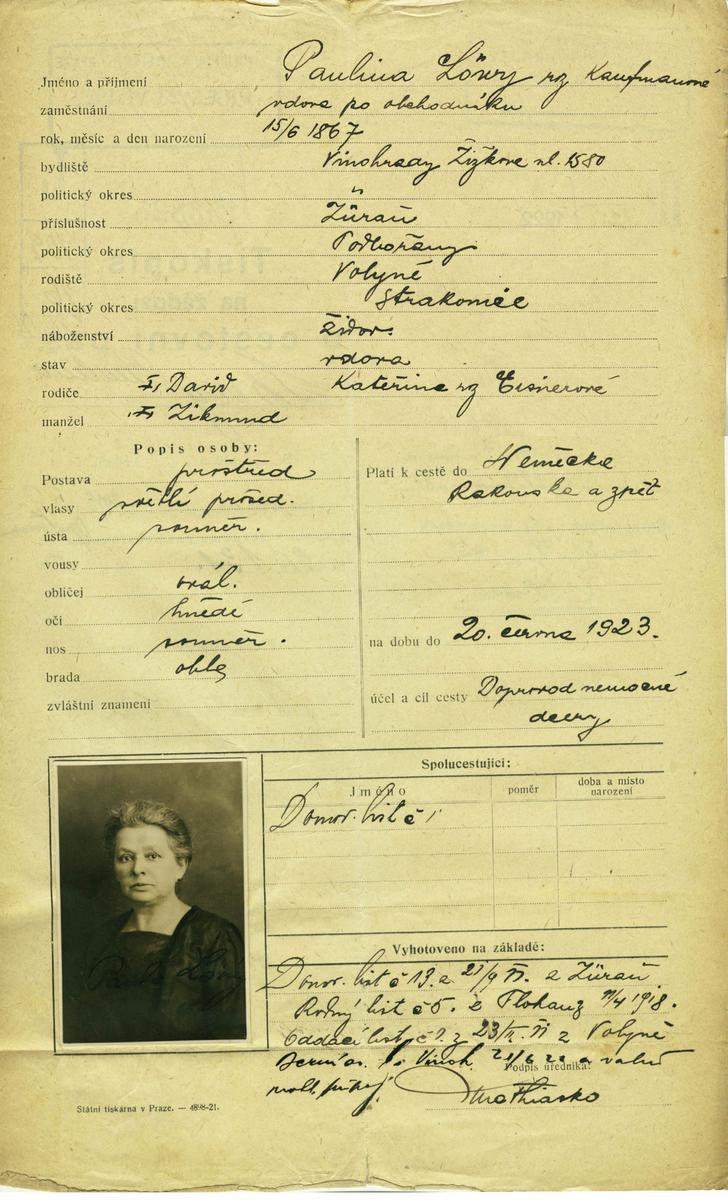 Jméno a příjmení Paulina Löwy roz Kaufmanové
zaměstnání vdova po obchodníku
rok, měsíc a den narození 15/6 1867
bydliště Vinohrady Žižkova ul. 1580
politický okres „
příslušnost Žürau
politický okres Podbořany
rodiště Volyně
politický okres Strakonice
náboženství židov.
stav vdova
rodiče David Kateřina roz Eisnerové
manžel Zikmund
Popis osoby:
Postava prostřed
vlasy světlí prošed.
ústa souměr.
vousy
obličej ovál.
oči hnědé
nos souměr.
brada oble
zvláštní znamení
Platí k cestě do Německa
Rakouska a zpět
na dobu do 20. června 1923.
účel a cíl cesty Doprovod nemocné
dcery
Spolucestující:
Jméno poměr doba a místo narození
Domov. list č
Paula Löwy
Vyhotoveno na základě:
Domov. list č 13. z 21/9 z Žürau
Rodný list č 5. z 11/4 1918.
Oddací list č z 23/ z Volyně
Vinoh. 21/6 22 a
Podpis úředníka:
Státní tiskárna v Praze. — -21.